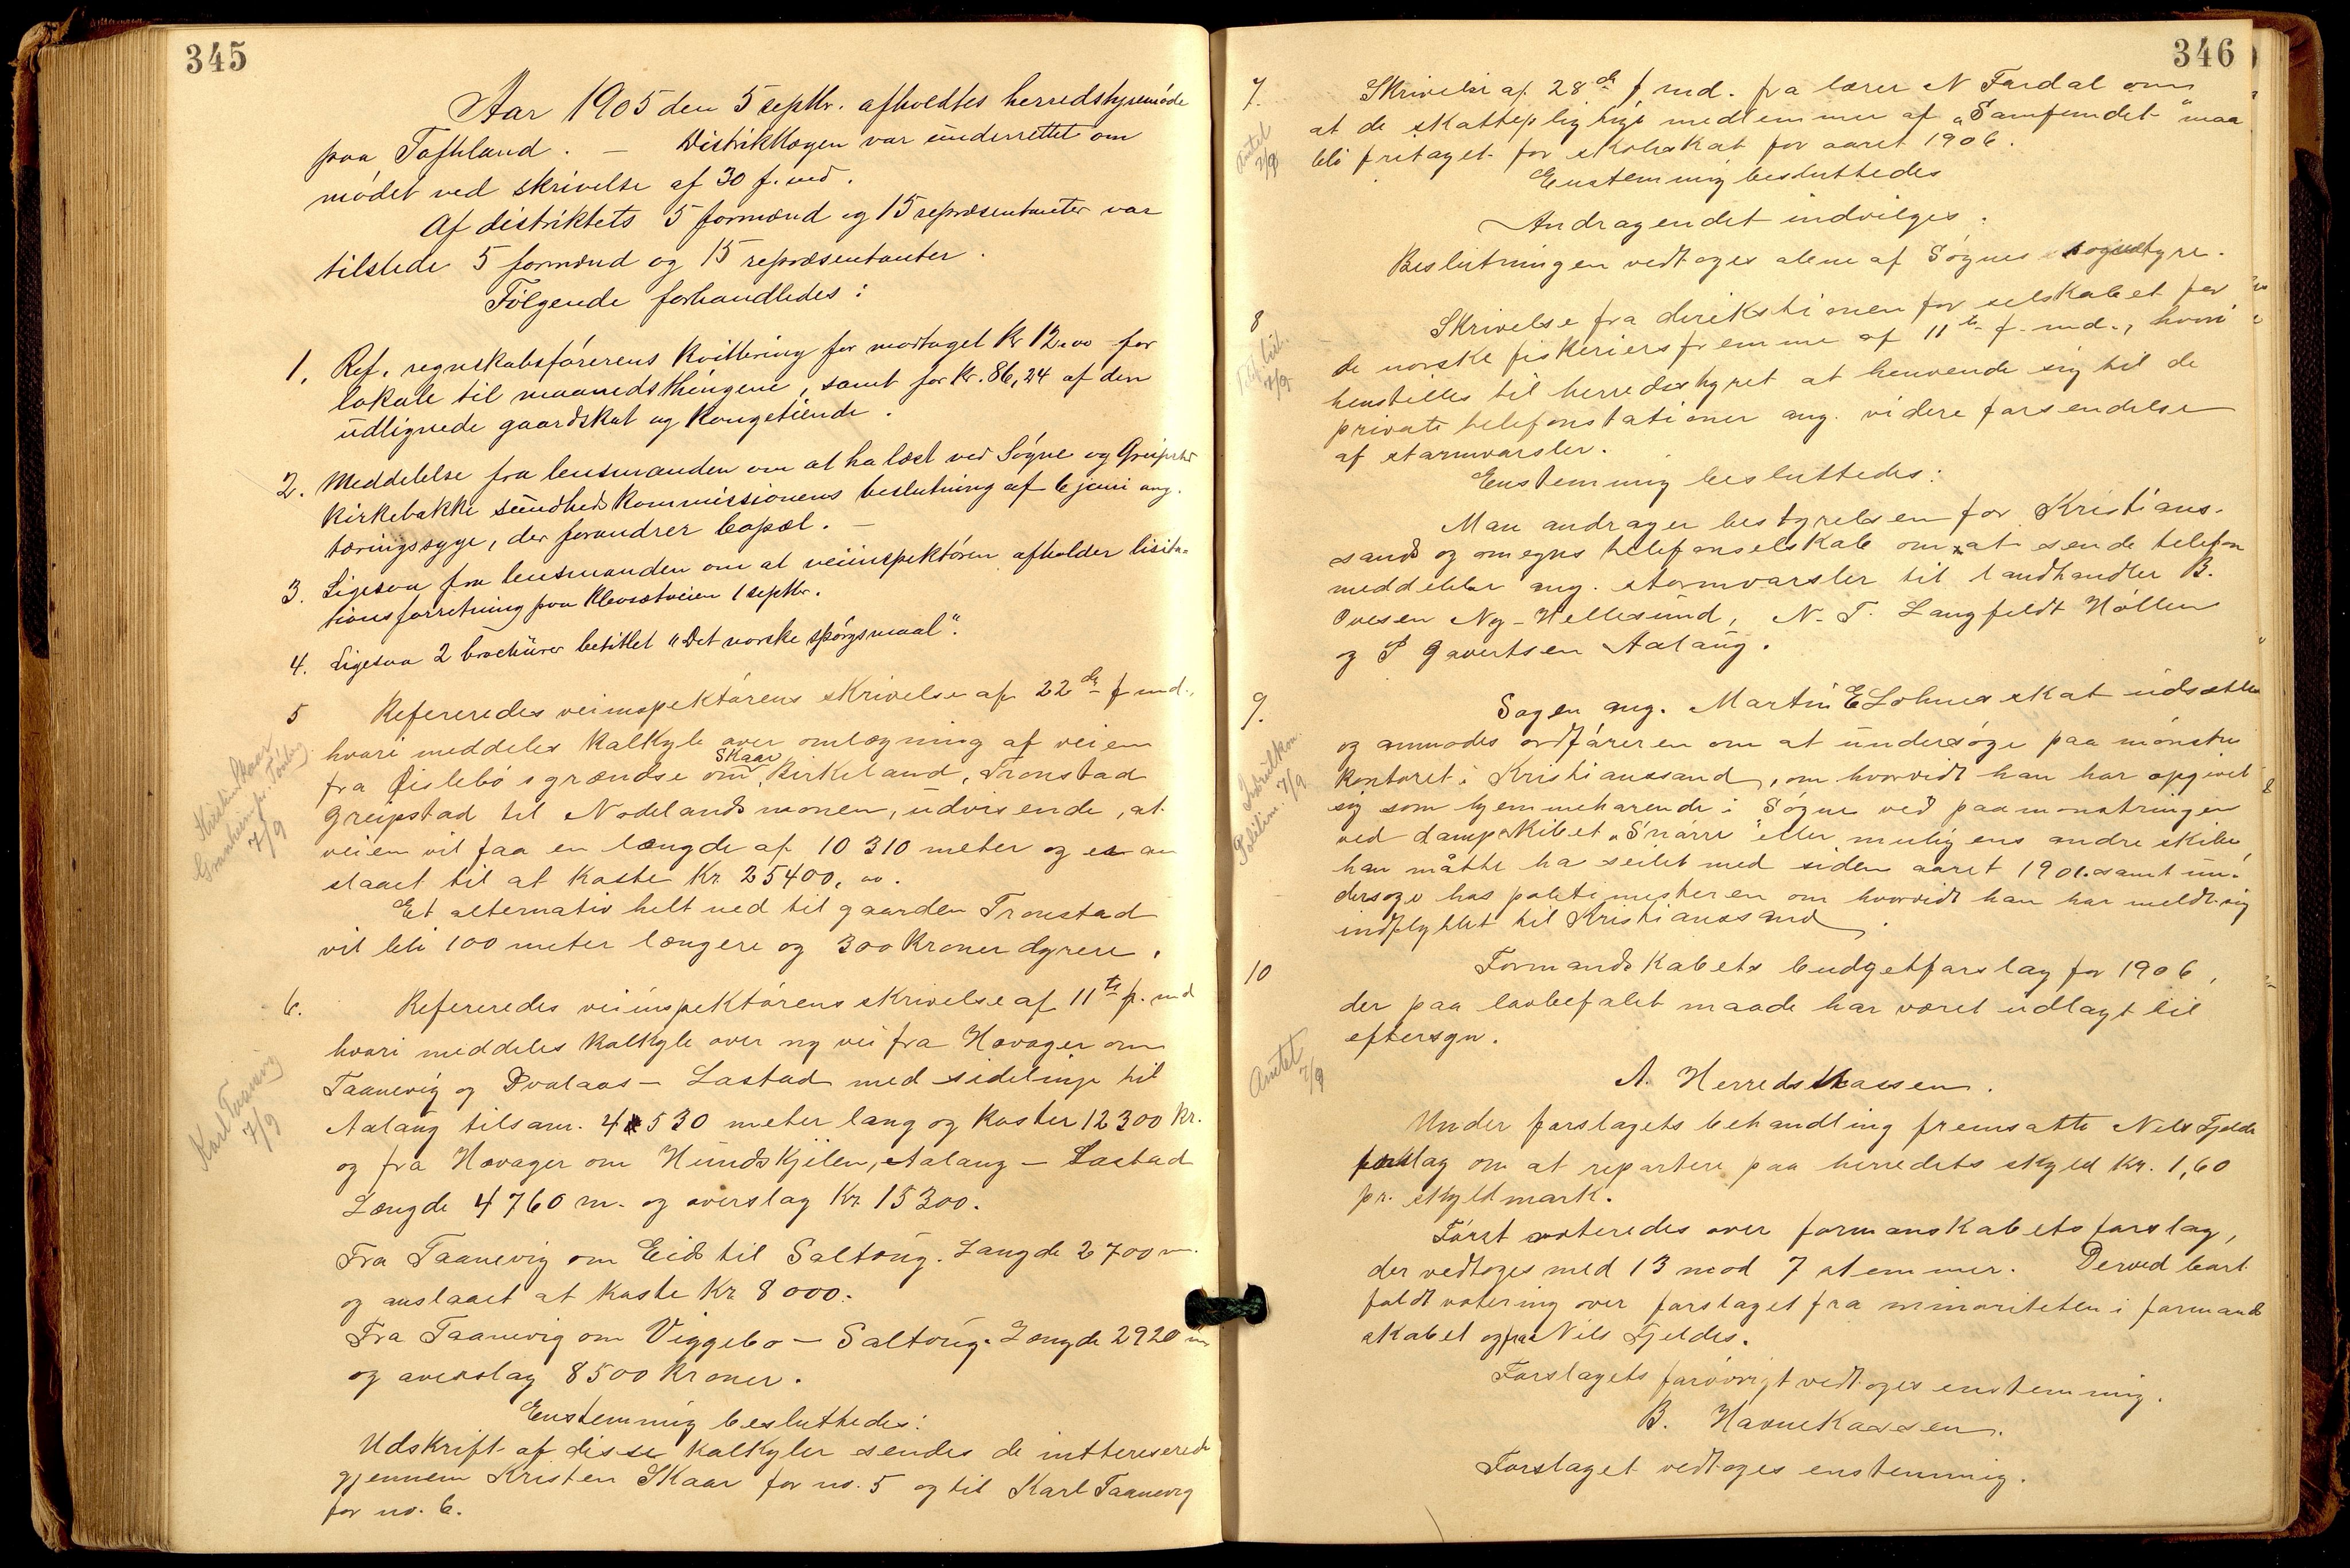 345
Aar 1905 den 5 septbr. afholdtes herredstyremøde
paa Tofthland. — Distriktlægen var underrettet om
mødet ved skrivelse af 30 f. md.
Af distriktets 5 formænd og 15 repræsentanter var
tilstede 5 formænd og 15 repræsentanter.
Følgende forhandledes:
1. Ref. regnskabsførerens kvittering for modtaget kr 12.00 for
lokale til maanedsthingene, samt for kr. 86,24 af den
udlignede gaardskat og kongetiende.
2. Meddelelse fra lensmanden om at ha læst ved Søgne og Greipstad
kirkebakke sundhedskommissionens beslutning af 6 juni ang.
tæringssyge, der forandrer bopæl. —
3. Ligesaa fra lensmanden om at veiinspektøren afholder lisita-
tionsforretning paa Klevsætveien 1 septbr.
4. Ligesaa 2 brochürer betitlet "Det norske spørgsmaal".
5 Refereredes veiinspektørens skrivelse af 22de f md.,
hvori meddeles kalkyle over omlægning af veien
fra Øislebø s grændse om Skaar Birkeland, Tronstad
Greipstad til Nodelandsmonen, udvisende, at
veien vil faa en længde af 10310 meter og er an
slaaet til at koste Kr. 25400,00.
Et alternativ helt ned til gaarden Tronstad
vil bli 100 meter længere og 300 kroner dyrere.
6. Refereredes veiinspektørens skrivelse af 11te f. md
hvori meddeles kalkyle over ny vei fra Hovager om
Taanevig og Dvalaas — Lastad med sidelinje til
Aalaug tilsam. 4530 meter lang og koster 12300 kr.
og fra Hovager om Hundskjilen, Aalaug — Lastad
Længde 4760 m. og overslag Kr 15300.
Fra Taanevig om Eid til Saltøng. Længde 2700 m.
og anslaaet at koste kr. 8000.
Fra Taanevig om Viggebo — Saltøng. Længde 2920 m
og overslag 8500 kroner.
Enstemmig besluttedes:
Udskrift af disse kalkyler sendes de inttereserede
gjennem Kristen Skaar for no. 5 og til Karl Taanevig
for no. 6.
Kristen Skaar
7/9
Karl Taanevig
7/9
346
7. Skrivelse af 28de f md. fra lærer N Fardal om
at de skattepligtige medlemmer af „Samfundet" maa
bli fritaget for skoleskat for aaret 1906.
Enstemmig besluttedes
Andragendet indvilges.
Beslutningen vedtoges alene af Søgnes sognestyre.
Amtet
7/9
8 Skrivelse fra direkstionen for selskabet for
de norske fiskeriers fremme af 11te f. md., hvori
henstilles til herredsstyret at henvende sig til de
private telefonstationer ang. videre forsendelse
af stormvarsler.
Enstemmig besluttedes:
Man andrager bestyrelsen for Kristians-
sands og omegns telefonselskab om at sende telefon
meddelelser ang. stormvarsler til landhandler B.
Ovesen Ny-Hellesund, N. T. Langfeldt Høllen
og P Gavertsen Aalaug.
7/9
9. Sagen ang. Martin E Lohnes skat udsættes
og anmodes ordføreren om at undersøge paa mønstre
kontoret i Kristianssand, om hvorvidt han har opgivet
sig som hjemmehørende i Søgne ved paamønstringen
ved dampskibet „Snarre" eller muligens andre skibe,
han måtte ha seilet med siden aaret 1901. samt un-
dersøge hos politimesteren om hvorvidt han har meldt sig
indflyttet til Kristianssand.
Politim. 7/9
10 Formandskabets budgetforslag for 1906,
der paa lovbefalet maade har været udlagt til
eftersyn.
Amtet
7/9
A. Herredskassen.
Under forslagets behandling fremsatte Nils Fjelde
forslag om at repartere paa herredets skyld Kr. 1,60
pr. skyldmark.
Først voteredes over formanskabets forslag,
der vedtoges med 13 mod 7 stemmer. Derved bort
faldt votering over forslaget fra minoriteten i formand
skabet og fra Nils Fjeldes.
Forslagets forøvrigt vedtoges enstemmig.
B. Havnekassen.
Forslaget vedtoges enstemmig.